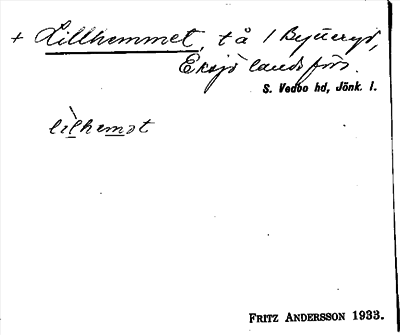 + Lillhemmet, tå 1 Bytteryd,
Eksjö landsförs.
S. Vedbo hd, Jönk. l.
lìlhemət
FRITZ ANDERSSON 1933.